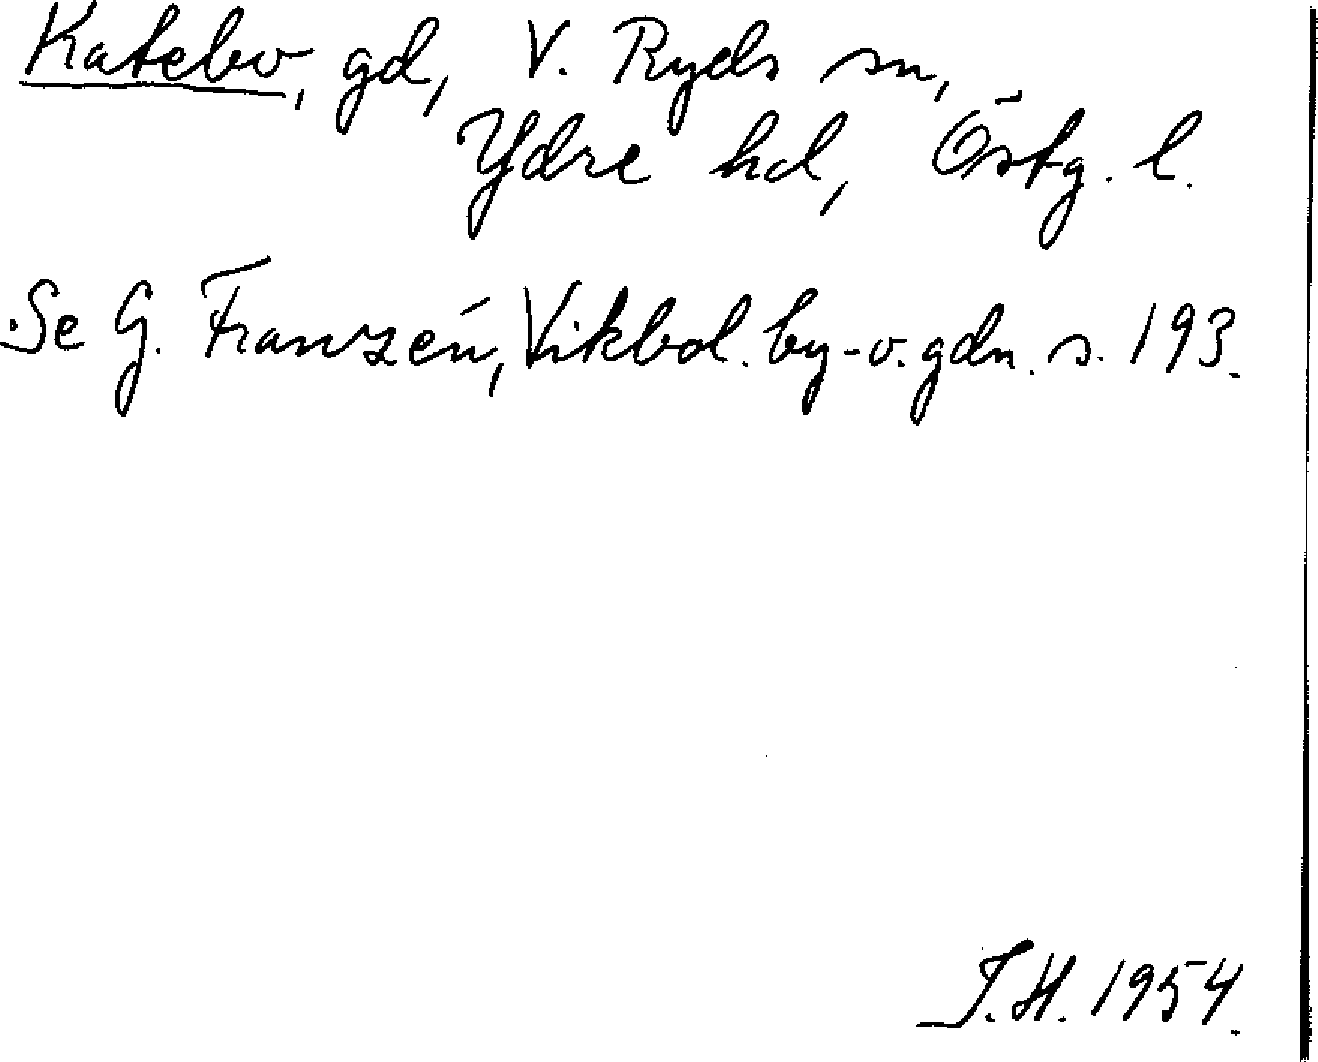 Katebo, gd, V. Ryds sn,
Ydre hd, Östg. l.
Se G. Franzén, Vikbol. by- o. gdn. s. 193.
I.H. 1954.